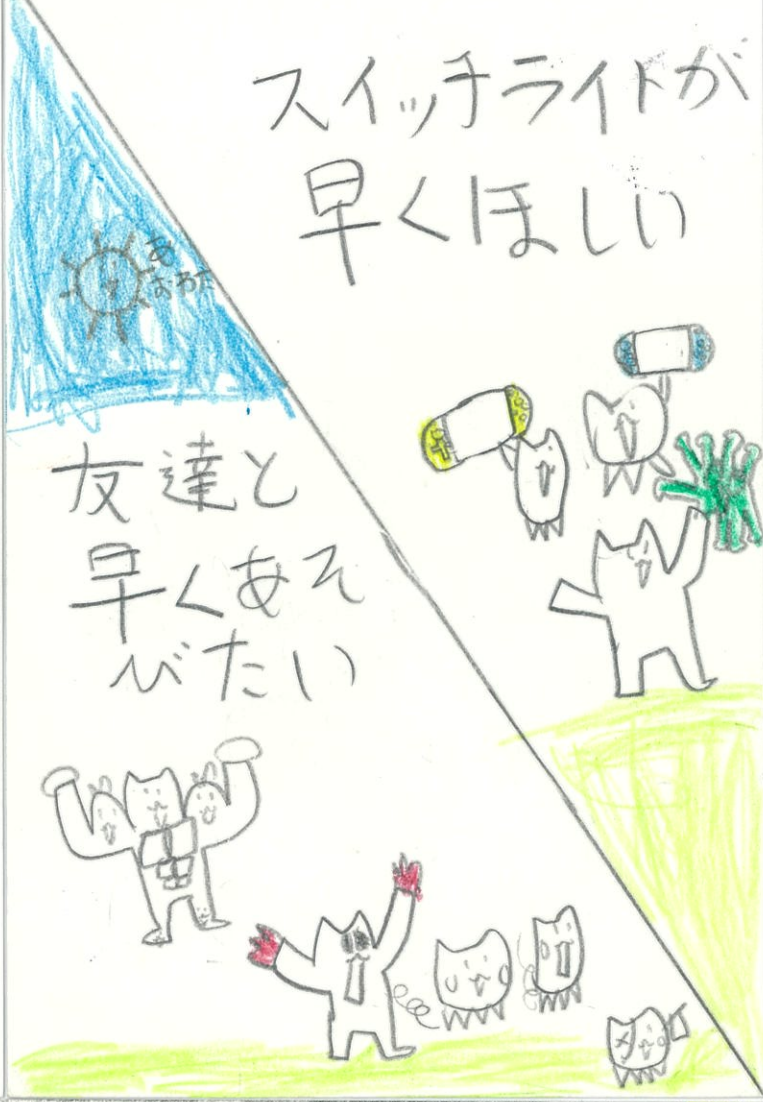 スイッチライトが
早くほしい
友達と
早くあそ
びたい